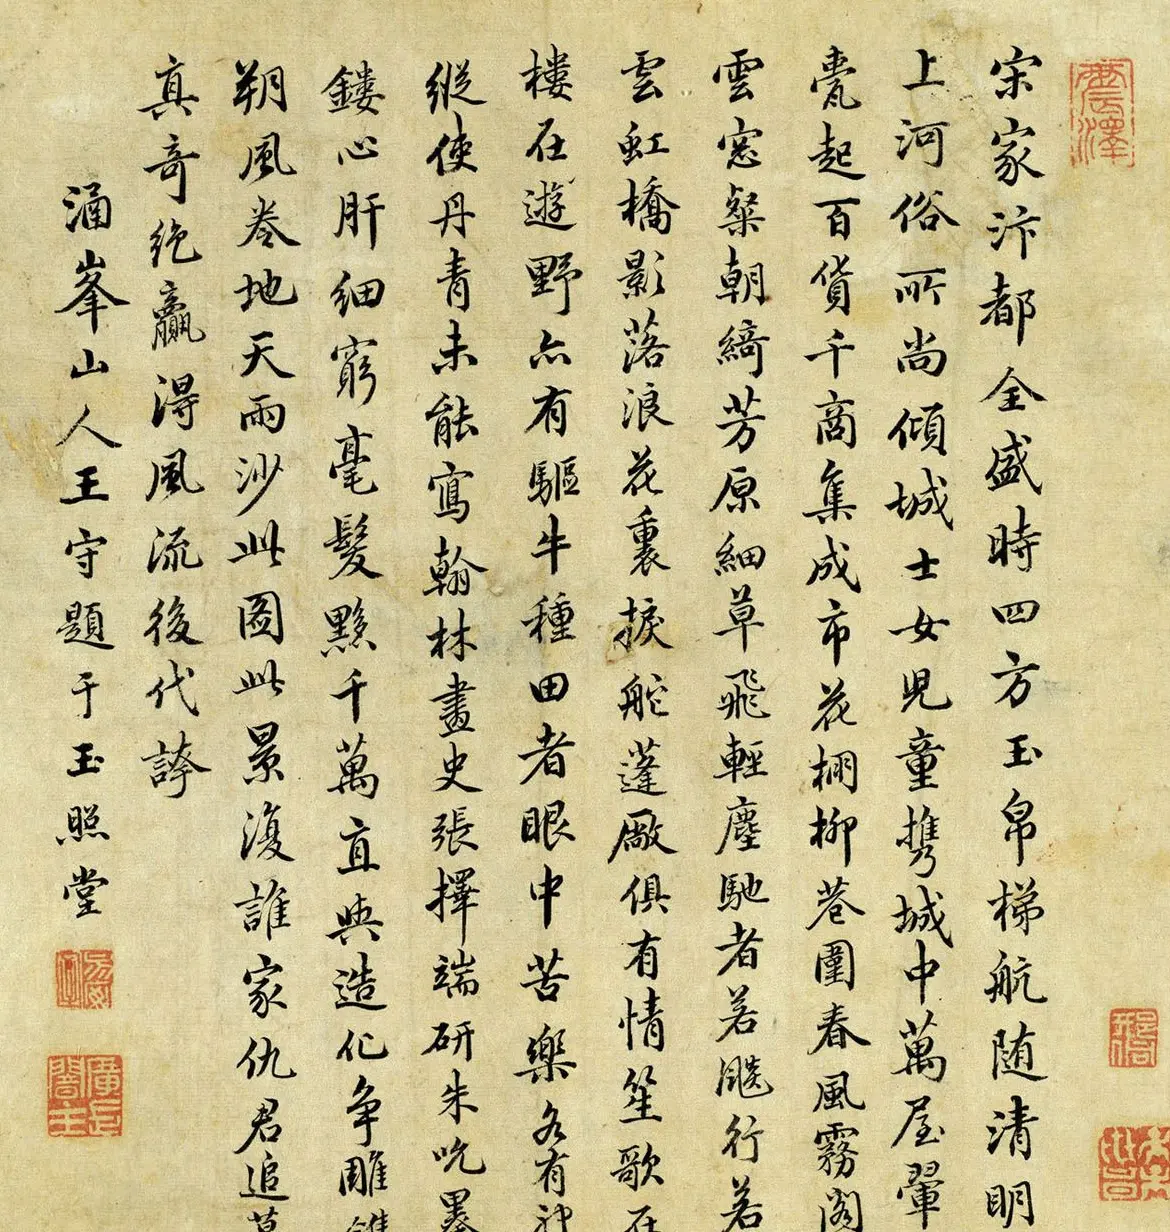 震澤
宋家汴都全盛時四方玉帛梯航随清明
上河俗所尚傾城士女兒童攜城中萬屋翬
甍起百貨千商集成市花棚柳巷圍春風霧閣
雲窓粲朝綺芳原細草飛輕塵馳者若飈行若
雲虹橋影落浪花裏捩舵蓬廠俱有情笙歌在
樓在遊野亦有驅牛種田者眼中苦樂各有
縱使丹青未能寫翰林畫史張擇端研朱吮墨
鏤心肝細窮毫髮夥千萬直與造化争雕鐫
朔風卷地天雨沙此图此景復誰家仇君追
真奇絶贏得風流後代誇
涌峯山人王守題于玉照堂